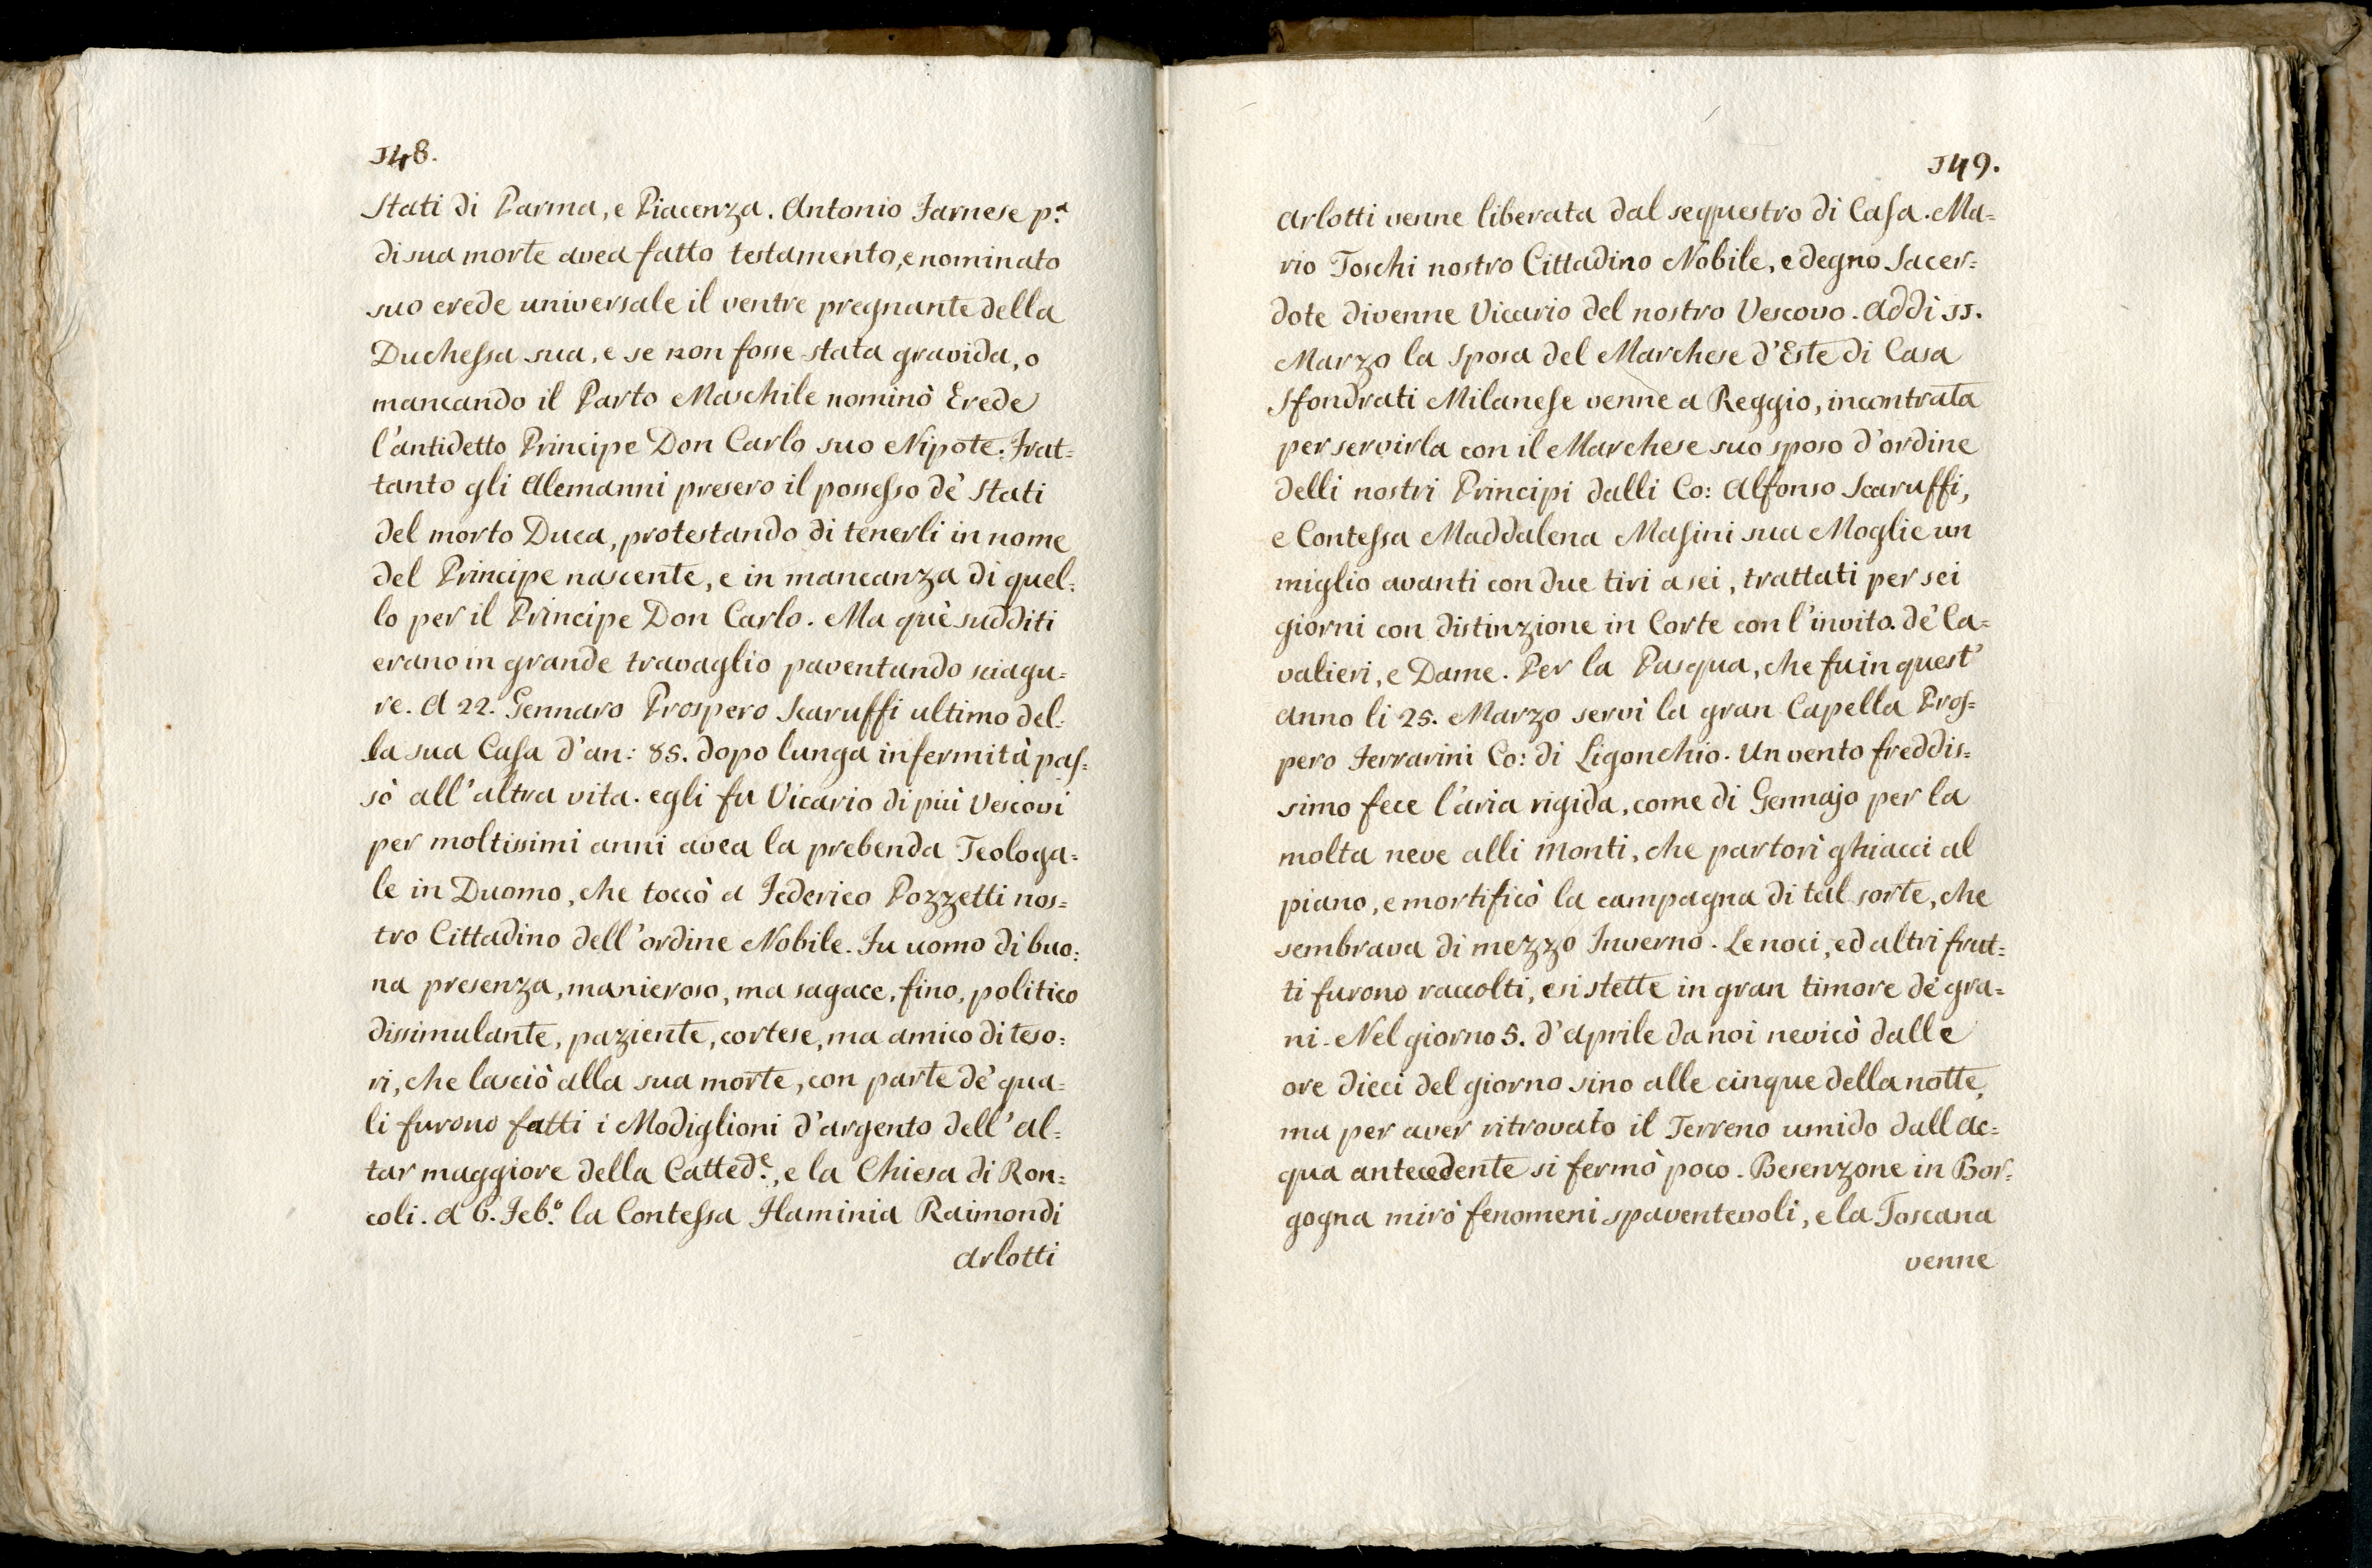 148.
Stati di Parma, e Piacenza. Antonio Farnese p.ª
di sua morte avea fatto testamento, e nominato
suo erede universale il ventre pregnante della
Duchessa sua, e se non fosse stata gravida, o
mancando il Parto Maschile nominò Erede
l'antidetto Principe Don Carlo suo Nipote. Frat=
tanto gli Alemanni presero il possesso de' Stati
del morto Duca, protestando di tenerli in nome
del Principe nascente, e in mancanza di quel=
lo per il Principe Don Carlo. Ma que' sudditi
erano in grande travaglio paventando sciagu=
re. A 22. Gennaro Prospero Scaruffi ultimo del=
la sua Casa d'an: 85. dopo lunga infermità pas=
sò all'altra vita. egli fu Vicario di più Vescovi
per moltissimi anni avea la prebenda Teologa=
le in Duomo, che toccò a Federico Pozzetti nos=
tro Cittadino dell'ordine Nobile. Fu uomo di buo=
na presenza, manieroso, ma sagace, fino, politico
dissimulante, paziente, cortese, ma amico di teso=
ri, che lasciò alla sua morte, con parte de' qua=
li furono fatti i Modiglioni d'argento dell'Al=
tar maggiore della Catted.e, e la Chiesa di Ron=
coli. A 6. Feb.o la Contessa Flaminia Raimondi
Arlotti
149.
Arlotti venne liberata dal sequestro di Casa. Ma=
rio Toschi nostro Cittadino Nobile, e degno Sacer=
dote divenne Vicario del nostro Vescovo. Addì 11.
Marzo la Sposa del Marchese d'Este di Casa
Sfondrati Milanese venne a Reggio, incontrata
per servirla con il Marchese suo sposo d'ordine
delli nostri Principi dalli Co: Alfonso Scaruffi,
e Contessa Maddalena Masini sua Moglie un
miglio avanti con due tiri a sei, trattati per sei
giorni con distinzione in Corte con l'invito de' Ca=
valieri, e Dame. Per la Pasqua, che fu in quest'
anno li 25. Marzo servì la gran Capella Pros=
pero Ferrarini Co: di Ligonchio. Un vento freddis=
simo fece l'aria rigida, come di Gennajo per la
molta neve alli Monti, che partorì ghiacci al
piano, e mortificò la campagna di tal sorte, che
sembrava di mezzo Inverno. Le noci, ed altri frut=
ti furono raccolti, e si stette in gran timore de' gra=
ni. Nel giorno 5. d'Aprile da noi nevicò dalle
ore dieci del giorno sino alle cinque della notte,
ma per aver ritrovato il Terreno umido dall ac=
qua antecedente si fermò poco. Besenzone in Bor=
gogna mirò fenomeni spaventevoli, e la Toscana
venne